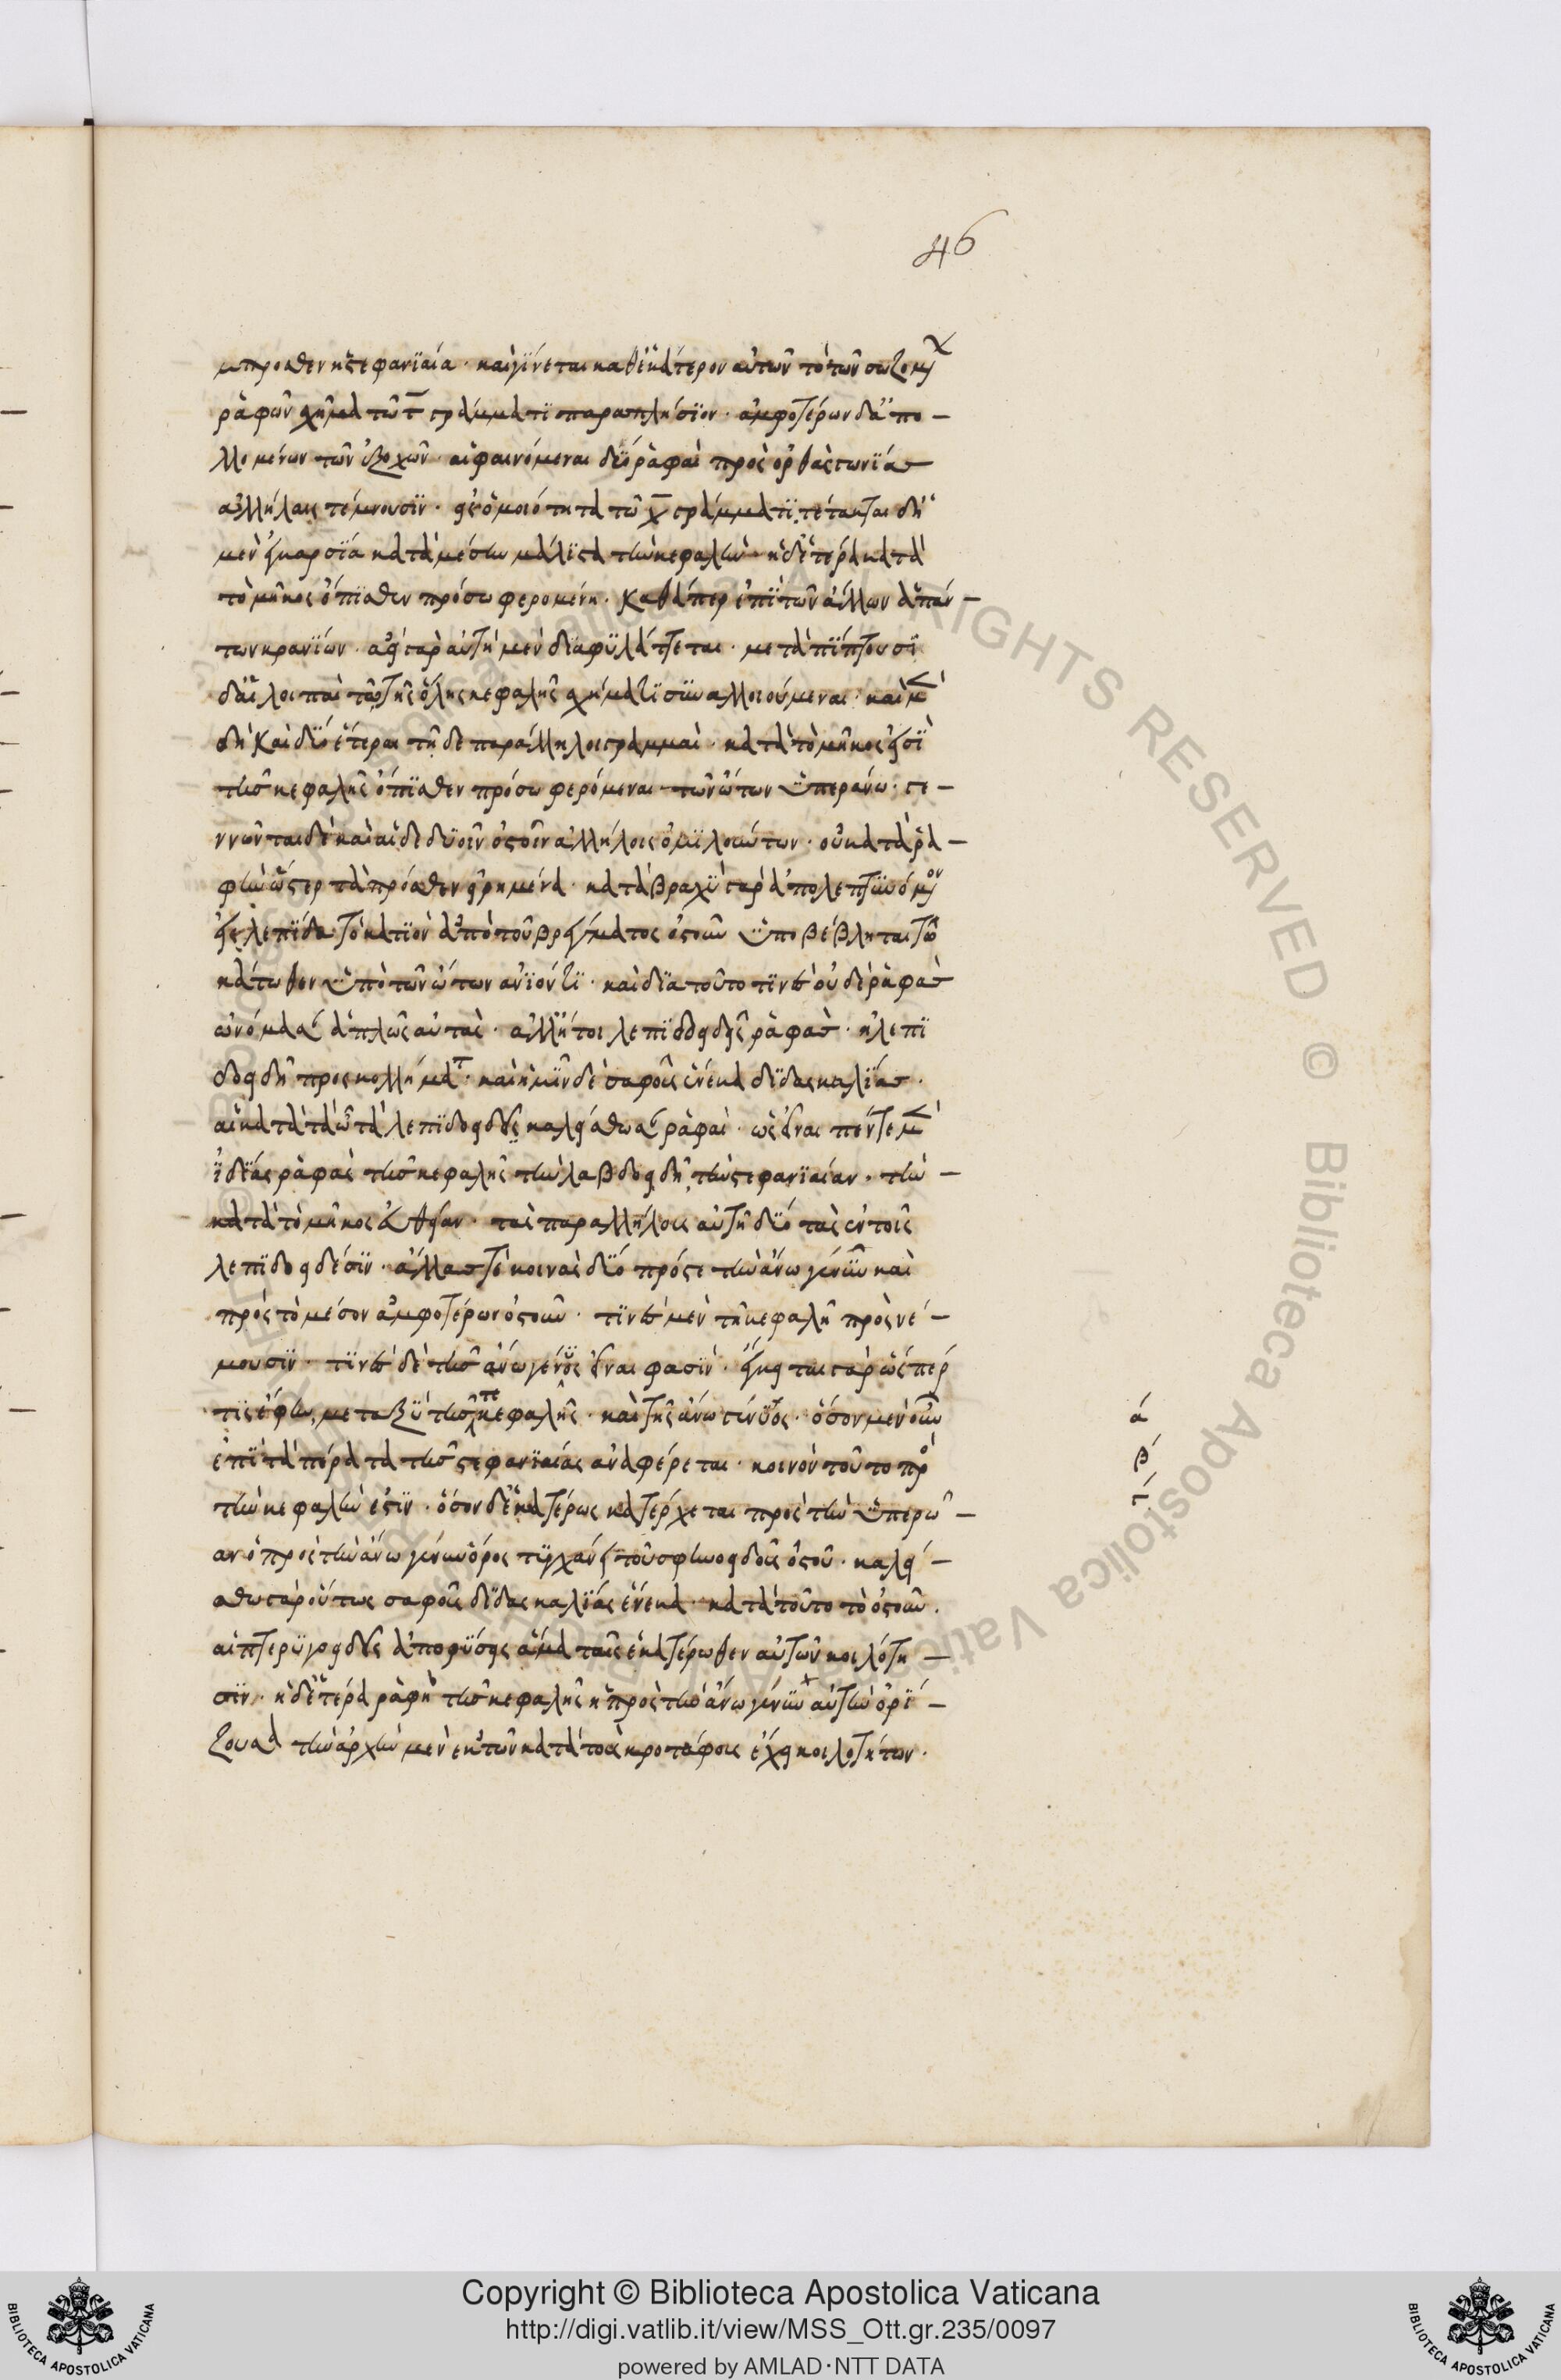 46
μπροσθεν ἡ στεφανιαία · καὶ γίνεται καθ' ἑκάτερον αὐτῶν τὸ τῶν σωζομένων
ῥαφῶν σχῆμα τῶ τ γράμματι παραπλήσιον · ἀμφοτέρων δ' ἀπο-
λλομένων τῶν ἐξοχῶν · αἱ φαινόμεναι δύο ῥαφαὶ πρὸς ὀρθὰς γωνίας
ἀλλήλας τέμνουσιν · εἰς ὁμοιότητα τῶ χ γράμματι · τέτακται δ' ἡ
μὲν ἐγκαρσία κατὰ μέσην μάλιστα τὴν κεφαλὴν · ἡ δ' ἑτέρα κατὰ
τὸ μῆκος ὄπισθεν πρόσω φερομένη · καθάπερ ἐπὶ τῶν ἄλλων ἁπάν-
των κρανίων · ἀεὶ γὰρ αὐτὴ μὲν διαφυλάττεται · μεταπίπτουσι
δ' αἱ λοιπαὶ τῶ τῆς ὅλης κεφαλῆς σχήματι συναλλοιούμεναι · καὶ μὲν
δὴ καὶ δύο ἕτεραι τῆδε παράλληλοι γραμμαὶ · κατὰ τὸ μῆκός εἰσὶ
τῆς κεφαλῆς ὄπισθεν πρόσω φερόμεναι τῶν ὤτων ὑπεράνω · γε-
ννῶνται δὲ καὶ αἵδε δυοῖν ὀστοῖν ἀλλήλοις ὁμιλούντων · οὐ κατὰ ῥα-
φὴν ὥσπερ τὰ πρόσθεν εἰρημένα · κατὰ βραχὺ γὰρ ἀπολεπτυνόμενον
εἰς λεπίδα τὸ κατιὸν ἀπὸ τοῦ βρέγματος ὀστοῦν ὑποβέβληται τῶ
κάτωθεν ὑπὸ τῶν ὤτων ἀνιόντι · καὶ διὰ τοῦτο τινὲς οὐδὲ ῥαφὰς
ὠνόμασαν ἁπλῶς αὐτὰς · ἀλλ' ἤτοι λεπιδοειδεῖς ῥαφὰς · ἢ λεπι
δοειδῆ προσκολλήματα · καὶ ἡμῖν δὲ σαφοῦς ἕνεκα διδασκαλίας ·
αἱ κατὰ τὰ ὦτα λεπιδοειδεῖς καλείσθωσαν ῥαφαὶ · ὡς εἶναι πέντε μὲν
ἰδίας ῥαφὰς τῆς κεφαλῆς τὴν λαβδοειδῆ, τὴν στεφανιαίαν · τὴν -
κατὰ τὸ μῆκος εὐθεῖαν · τὰς παραλλήλους αὐτῆ δύο τὰς ἐν τοῖς
λεπιδοειδέσιν · ἄλλας τὲ κοινὰς δύο πρός τε τὴν ἄνω γένυν καὶ
πρὸς τὸ μέσον ἀμφοτέρων ὀστοῦν · τινὲς μὲν τῆ κεφαλῆ προσνέ-
μουσιν · τινὲς δὲ τῆς ἄνω γένυος εἶναι φασὶν · ἔγκειται γὰρ ὥσπερ
τις σφὴν, μεταξὺ τῆς τε κεφαλῆς · καὶ τῆς ἄνω γένυος · ὅσον μὲν οὖν
ἐπὶ τὰ πέρατα τῆς στεφανιαίας ἀναφέρεται · κοινὸν τοῦτο πρὸς
τὴν κεφαλὴν ἐστὶν · ὅσον δ' ἑκατέρως κατέρχεται πρὸς τὴν ὑπερώ-
αν ὁ πρὸς τὴν ἄνω γένυν ὅρος τυγχάνει τοῦ σφηνοειδοῦς ὀστοῦ · καλεί-
σθω γὰρ οὕτως σαφοῦς διδασκαλίας ἕνεκα · κατὰ τοῦτο τὸ ὀστοῦν ·
αἱ πτερυγοειδεῖς ἀποφύσεις ἅμα ταῖς ἑκατέρωθεν αὐτῶν κοιλότη-
σιν · ἡ δ' ἑτέρα ῥαφὴ τῆς κεφαλῆς ἡ πρὸς τὴν ἄνω γένυν αὐτὴν ὁρί-
ζουσα τὴν ἀρχὴν μὲν ἐκ τῶν κατὰ τοὺς κροτάφους ἔχει κοιλοτήτων ·
α
β
γ
Copyright © Biblioteca Apostolica Vaticana
http://digi.vatlib.it/view/MSS_Ott.gr.235/0097
powered by AMLAD·NTT DATA